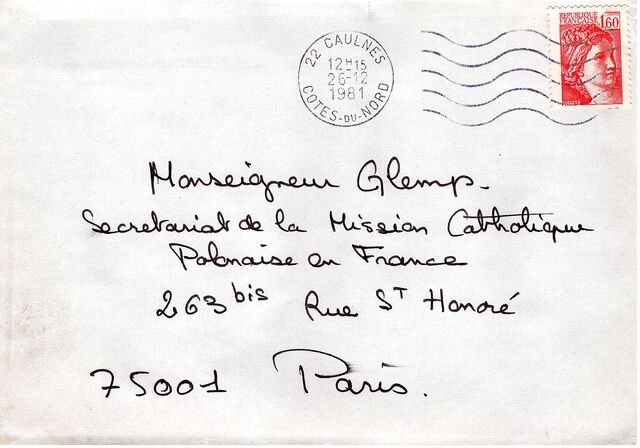 22 CAULNES
12H15
26-12
1981
COTES-DU-NORD
REPUBLIQUE
FRANÇAISE
1,60
POSTES
Monseigneur Glemp.
Secretariat de la Mission Catholique
Polonaise en France
263 bis Rue St Honoré
75001 Paris.